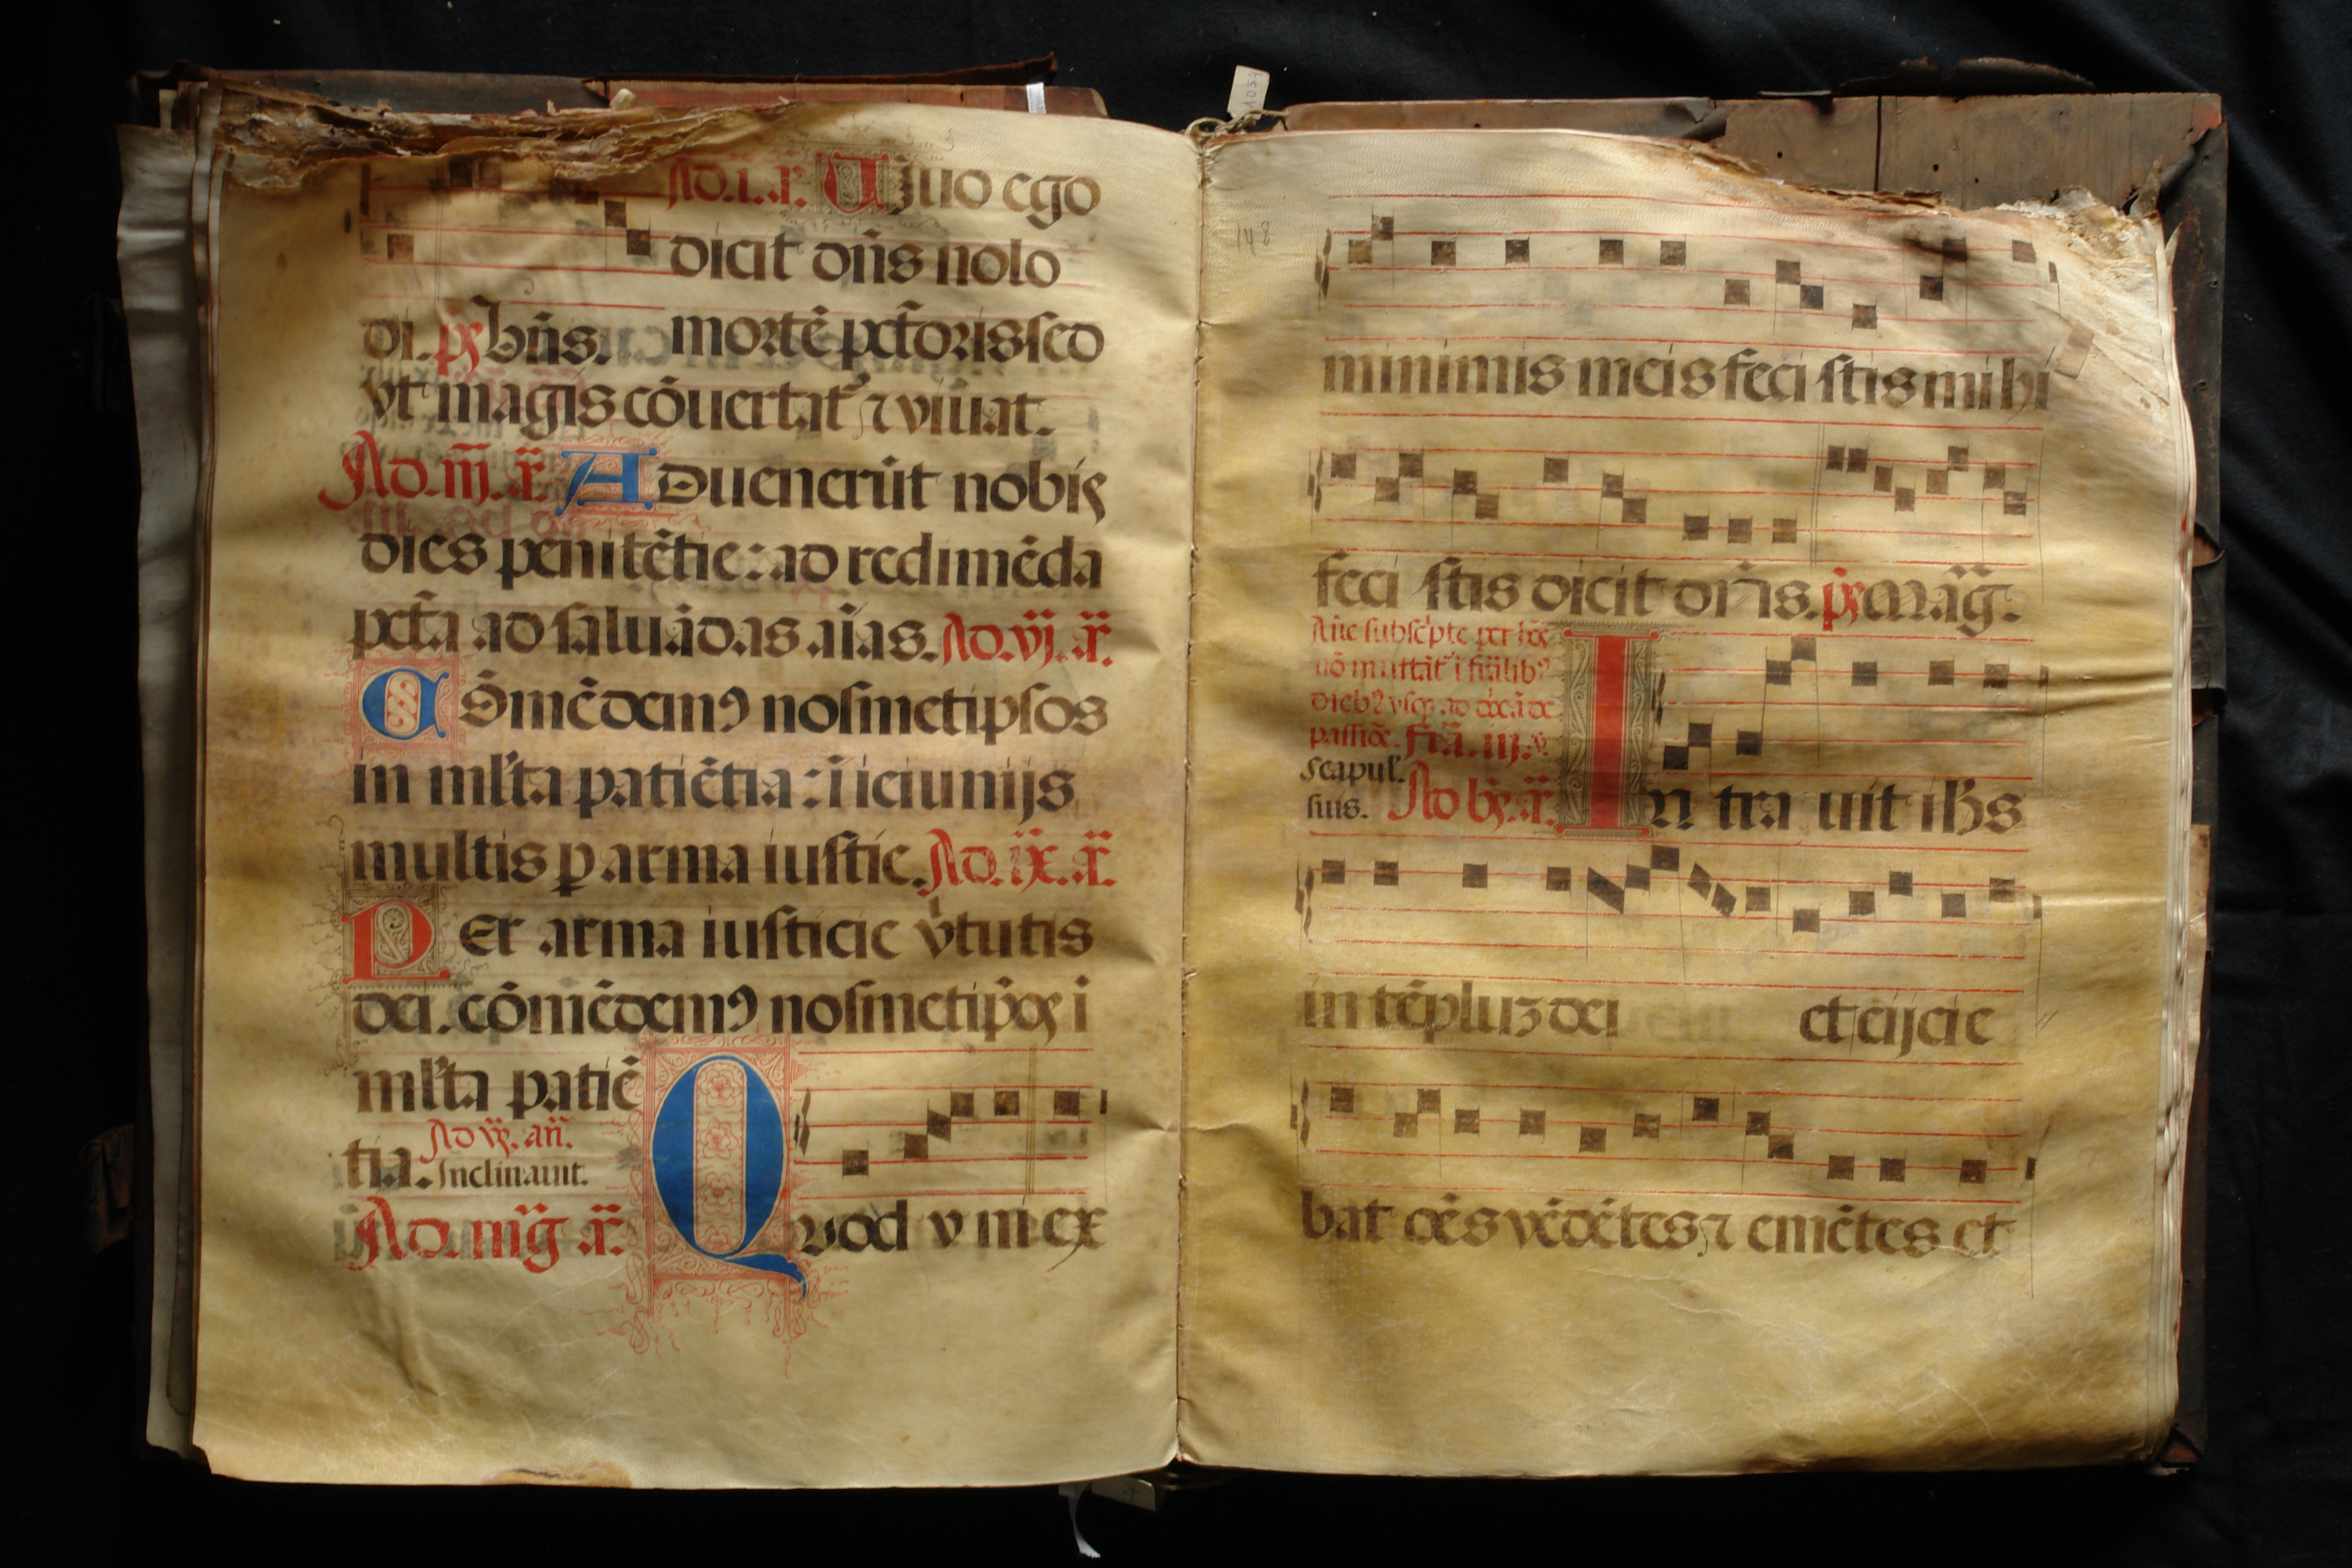 Ad.i.a. Uiuo ego
dicit dn̄s nolo
di. ps bn̄s. mortē pctōris sed
vt magis cōuertat᷑ ⁊ viuat.
Ad.iij.a. Aduenerūt nobis
dies penitētie: ad redimēda
pctā ad saluādas aīas. Ad.vj.a.
Cōmēdemꝰ nosmetipsos
in ml'ta patiētia: ī ieiunijs
multis p arma iustic. Ad.ix.a.
Per arma iusticie v̓tutis
dei. cōmēdemꝰ nosmetip̄os ī
ml'ta patiē
tia. Ad vs. an̄.
Inclinauit.
Ad. mag̃. a. Quod v ni ex
148
minimis meis feci stis mihi
feci stis dicit dn̄s. ps Mag̃.
passiōe. Fr̄a. iij. v.
Scapul'.
suis. Ad bs. a. In tra uit ihs
in tēpluꝫ dei et eijcie
bat oēs vēdētes ⁊ emētes et